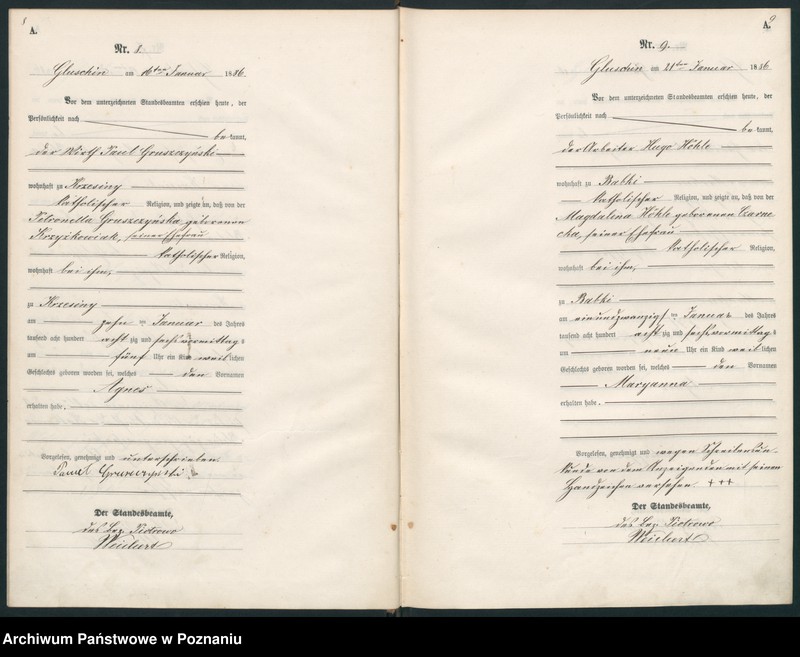 8
A.
Nr. 8.
Gluschin am 16ten Januar 1886.
Vor dem unterzeichneten Standesbeamten erschien heute, der
Persönlichkeit nach
be kannt,
der Wirth Paul Gruszczyński
wohnhaft zu Krzesiny
katholischer Religion, und zeigte an, daß von der
Petronella Gruszczyńska geborenen
Krzyżkowiak, seiner Ehefrau
katholischer Religion,
wohnhaft bei ihm,
zu Krzesiny
am zehn ten Januar des Jahres
tausend acht hundert acht zig und sechs vormittag s
um fünf Uhr ein Kind weib lichen
Geschlechts geboren worden sei, welches den Vornamen
Agnes
erhalten habe.
Vorgelesen, genehmigt und unterschrieben
Paweł Gruszczyński
Der Standesbeamte,
das Bez. Piotrowo
Weichert
9
A.
Nr. 9.
Gluschin am 21ten Januar 1886
Vor dem unterzeichneten Standesbeamten erschien heute, der
Persönlichkeit nach
be kannt,
der Arbeiter Hugo Höhle
wohnhaft zu Babki
katholischer Religion, und zeigte an, daß von der
Magdalena Höhle geborenen Czarne
cka, seiner Ehefrau
katholischer Religion,
wohnhaft bei ihm,
zu Babki
am einundzwanzigs ten Januar des Jahres
tausend acht hundert acht zig und sechs vormittag s
um neun Uhr ein Kind weib lichen
Geschlechts geboren worden sei, welches den Vornamen
Maryanna
erhalten habe.
Vorgelesen, genehmigt und wegen Schreibensun-
kunde von dem Anzeigenden mit seinem
Handzeichen versehen +++
Der Standesbeamte,
das Bez. Piotrowo
Weichert
Archiwum Państwowe w Poznaniu